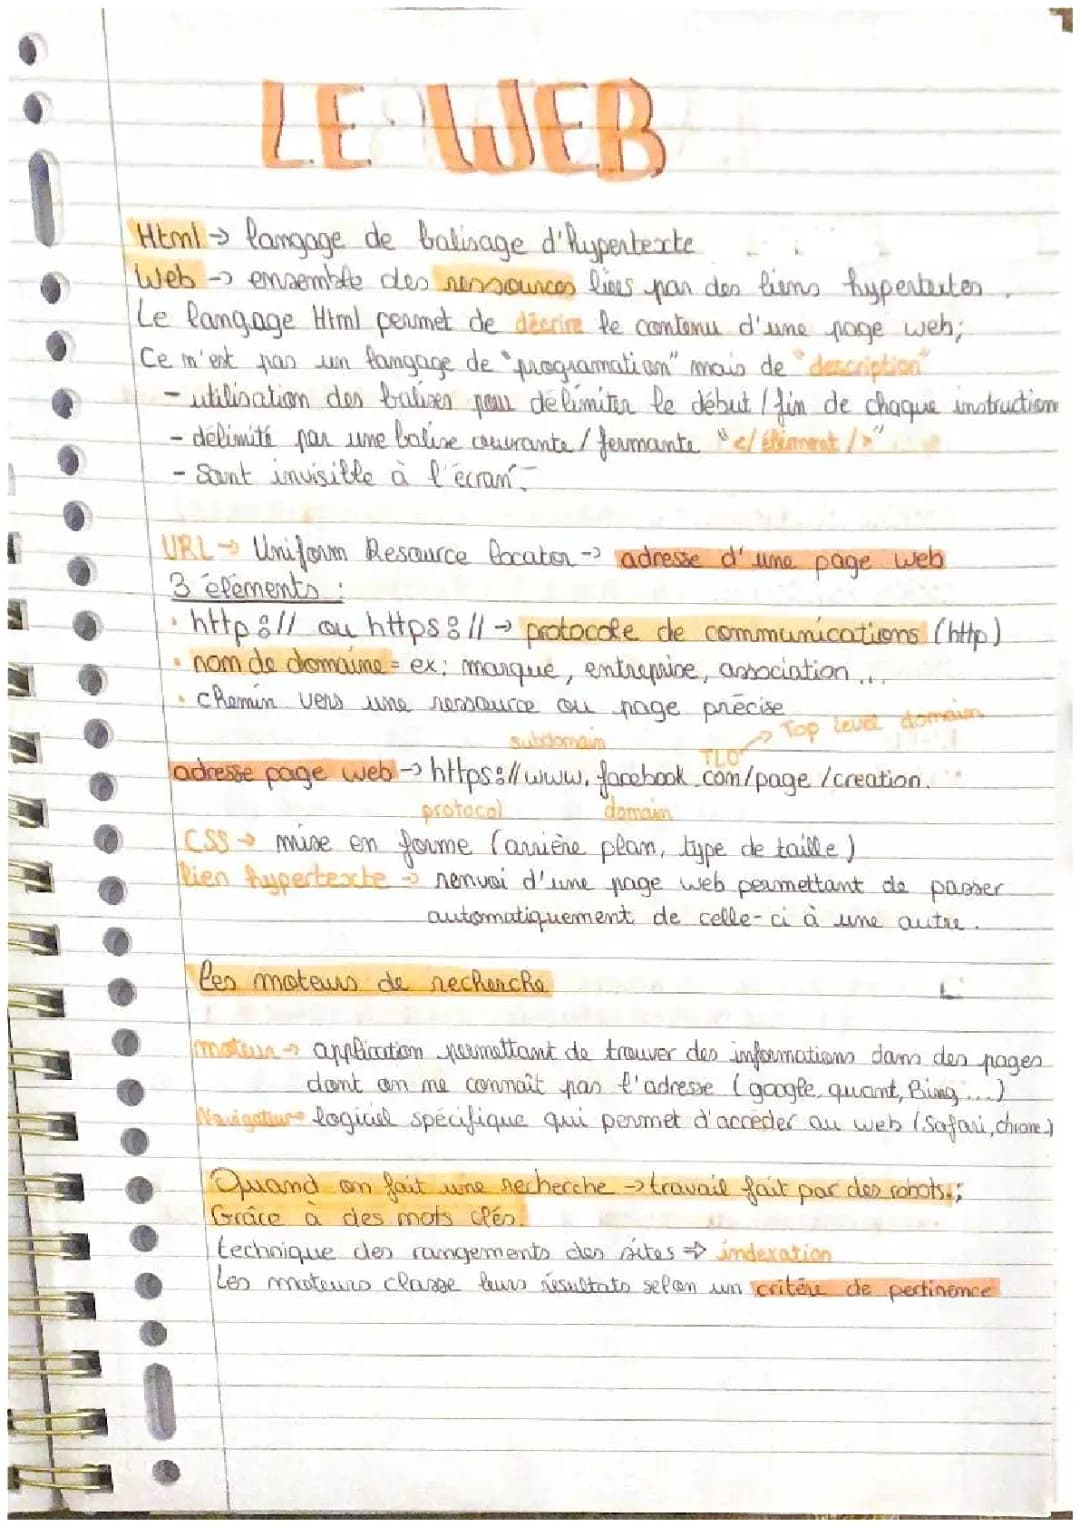 LE WEB
Html → langage de balisage d'hypertexte
Web → ensemble des ressources liées par des liens hypertextes.
Le langage Html permet de décrire le contenu d'une page web;
Ce n'est pas un langage de "programation" mais de "description"
- utilisation des balises pour délimiter le début / fin de chaque instruction
- délimité par une balise ouvrante / fermante "</ élément />"
- Sont invisible à l'écran.
URL → Uniform Resource locator → adresse d'une page web
3 éléments :
• http:// ou https:// → protocole de communications (http)
• nom de domaine = ex: marque, entreprise, association...
• chemin vers une ressource ou page précise
subdomain TLD → Top level domain
adresse page web → https://www.facebook.com/page/creation.
protocol domain
CSS → mise en forme (arrière plan, type de taille)
lien hypertexte → renvoi d'une page web permettant de passer
automatiquement de celle-ci à une autre.
les moteurs de recherche
moteur → application permettant de trouver des informations dans des pages
dont on ne connaît pas l'adresse (google, quant, Bing...)
Navigateur → logiciel spécifique qui permet d'accéder au web (Safari, chrome)
Quand on fait une recherche → travail fait par des robots;
Grâce à des mots clés.
technique des rangements des sites ⇒ indexation
Les moteurs classe leurs résultats selon un critère de pertinence